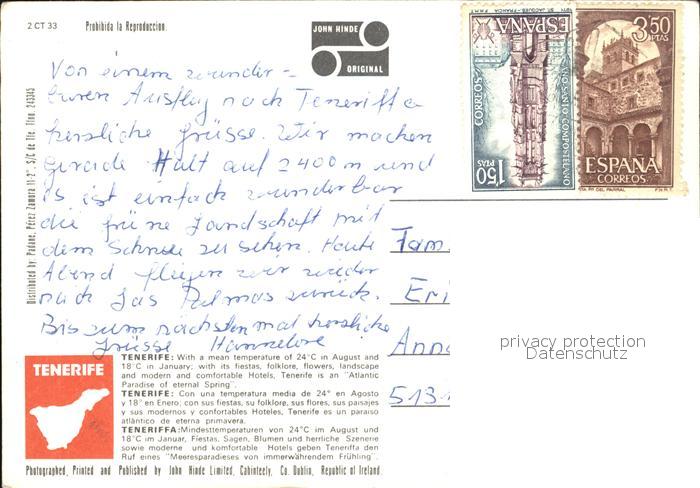 2 CT 33
Prohibida la Reproduccion
JOHN HINDE
ORIGINAL
Von einem wunder-
baren Ausflug nach Teneriffa
herzliche Grüsse. Wir machen
gerade Halt auf 2400 m und
es ist einfach wunderbar
die grüne Landschaft mit
dem Schnee zu sehen. Heute
Abend fliegen wir wieder
nach Las Palmas zurück.
Bis zum nächsten mal herzliche
Grüsse Hannelore
Distributed by: Padane, Pérez Zamora 11-2° S/C de Tfe. Tfno. 243345
TENERIFE
TENERIFE: With a mean temperature of 24°C in August and
18°C in January; with its fiestas, folklore, flowers, landscape
and modern and comfortable Hotels, Tenerife is an "Atlantic
Paradise of eternal Spring".
TENERIFE: Con una temperatura media de 24° en Agosto
y 18° en Enero; con sus fiestas, su folklore, sus flores, sus paisajes
y sus modernos y comfortables Hoteles, Tenerife es un paraiso
atlántico de eterna primavera.
TENERIFFA: Mindesttemperaturen von 24°C im August und
18°C im Januar, Fiestas, Sagen, Blumen und herrliche Szenerie
sowie moderne und komfortable Hotels geben Teneriffa den
Ruf eines "Meeresparadises von immerwährendem Frühling".
Photographed, Printed and Published by John Hinde Limited, Cabinteely, Co. Dublin, Republic of Ireland
ESPAÑA
CORREOS
AÑO SANTO COMPOSTELANO
1'50
PTAS
3'50
PTAS
ESPAÑA
CORREOS
Fam.
Eri
Anna
513
privacy protection
Datenschutz